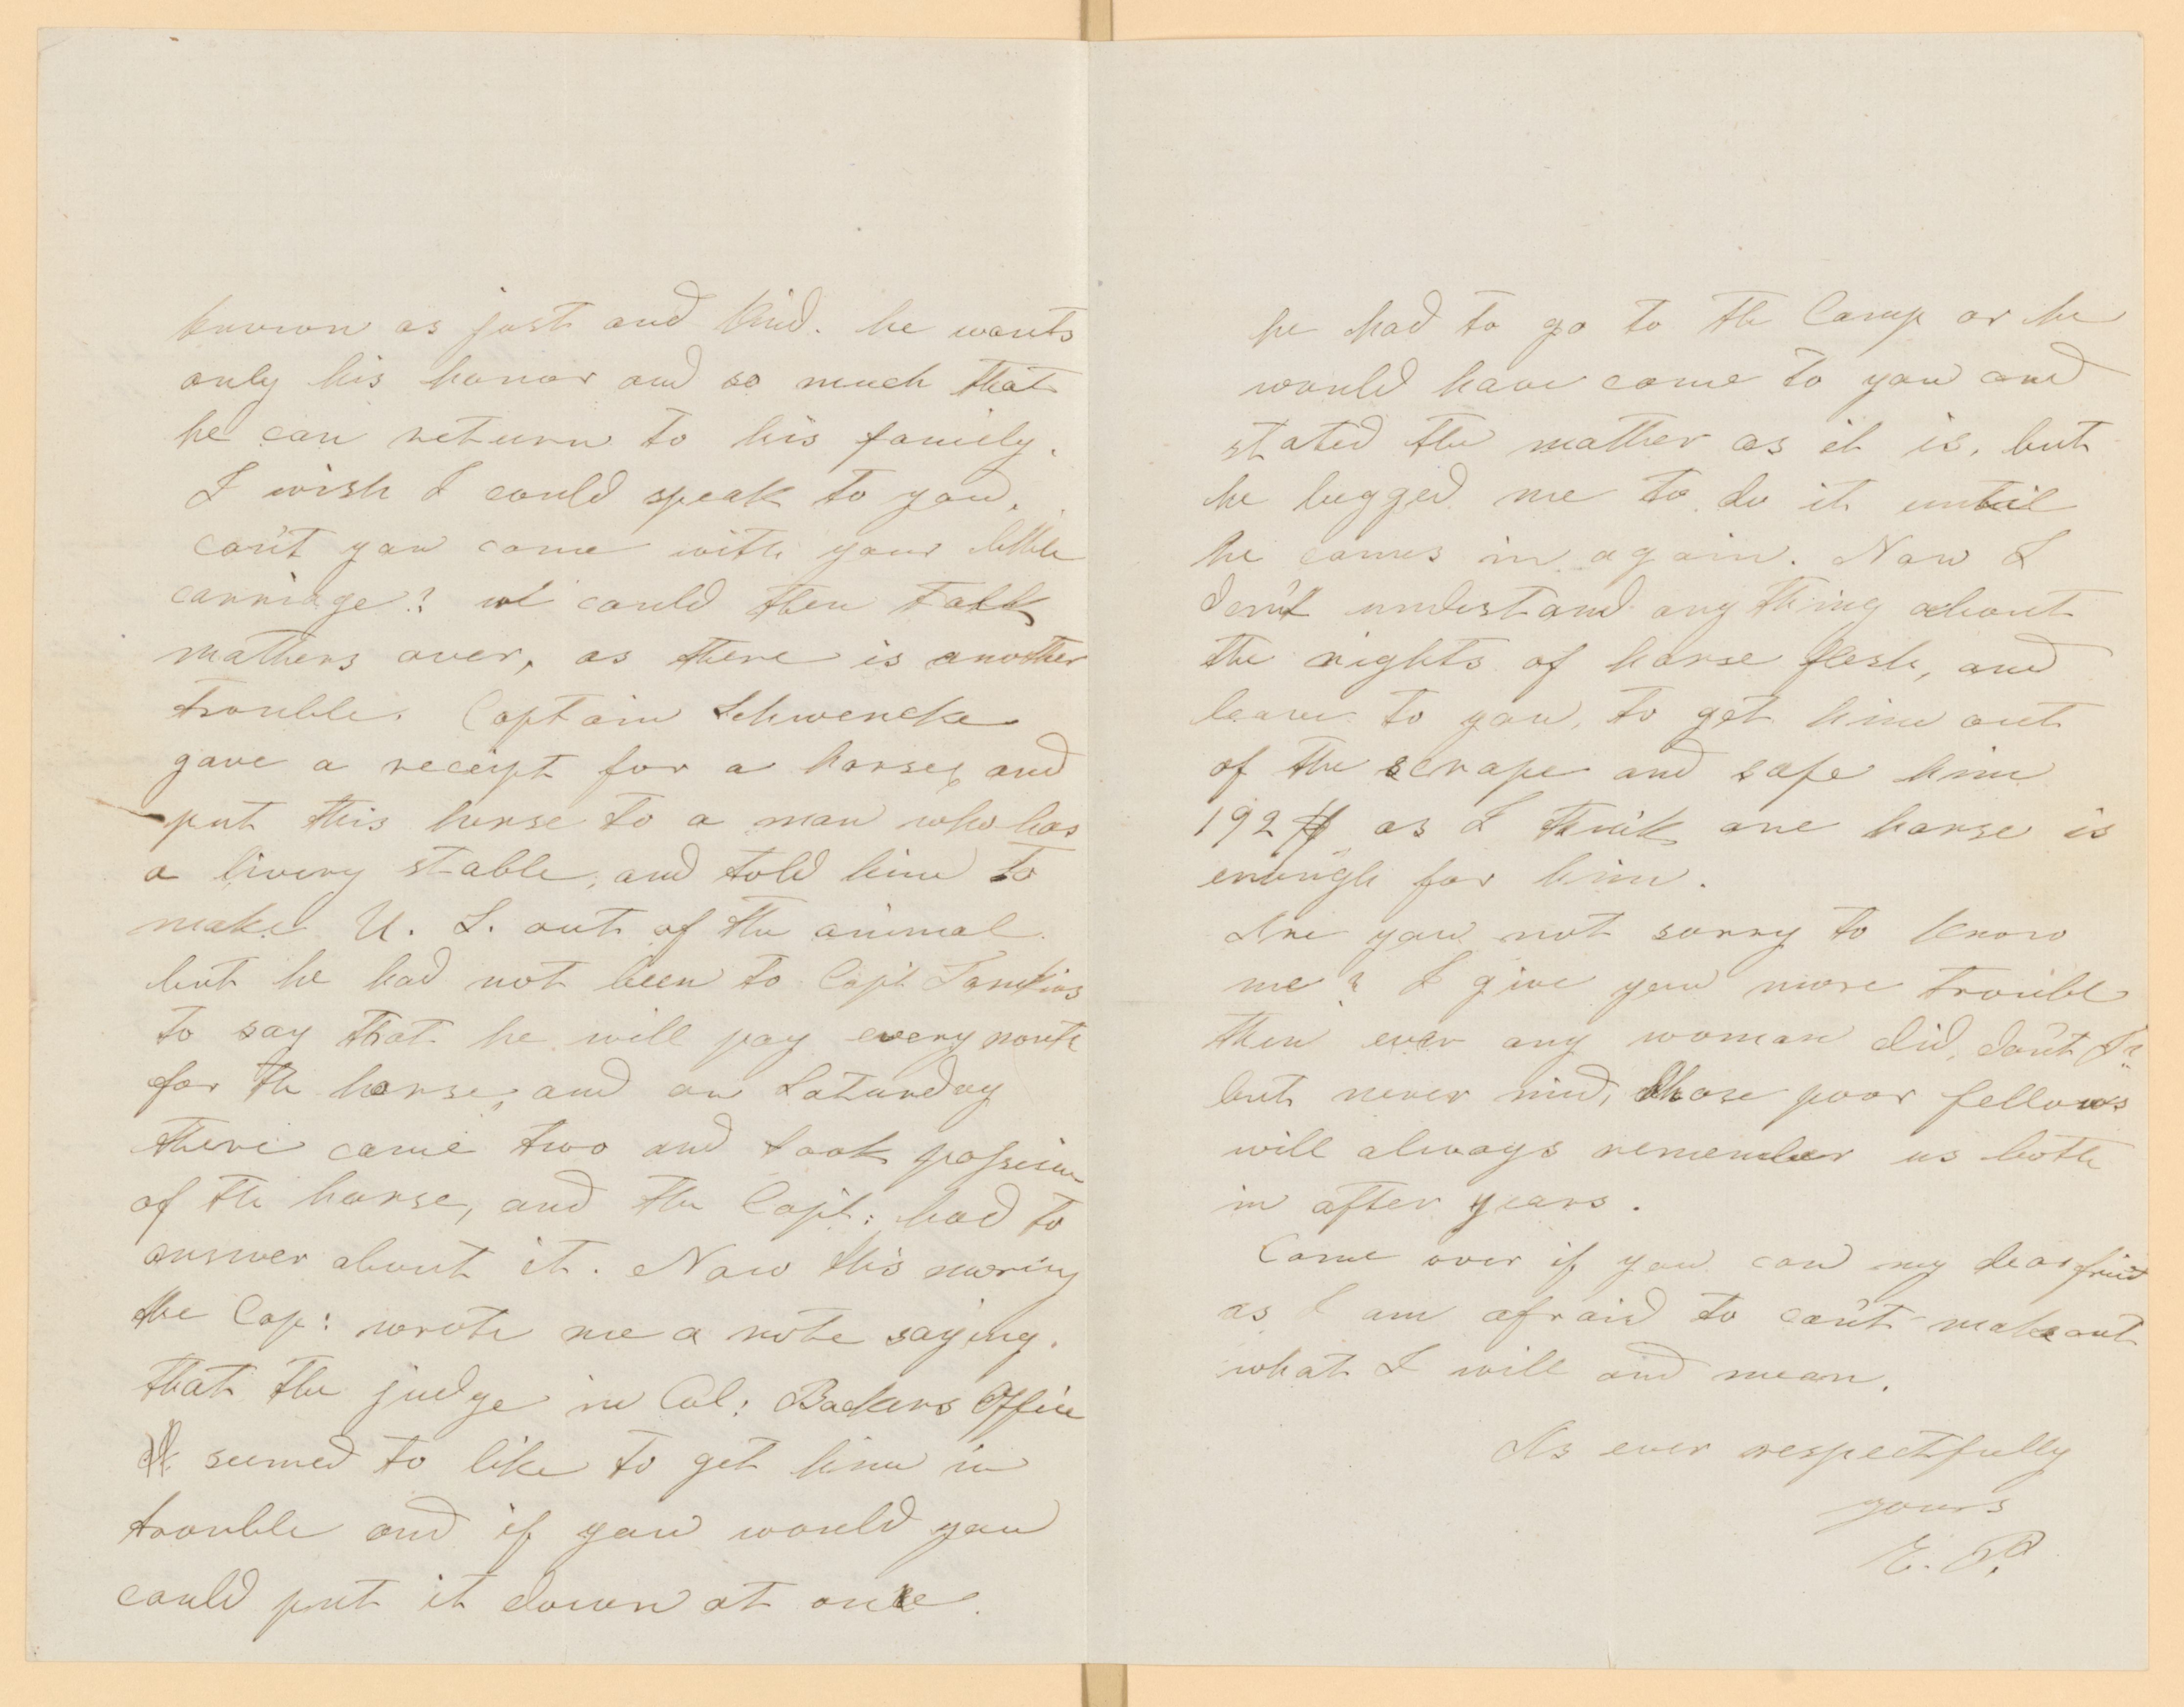 known as just and kind. he wants
only his honor and so much that
he can return to his family.
I wish I could speak to you.
can't you come with your little
carriage? we could then talk
mathers over, as there is another
trouble. Captain Schwencke
gave a receipt for a horse, and
put this horse to a man who has
a livery stable, and told him to
make U. S. out of the animal.
but he had not been to Capt. Tomkins
to say that he will pay every month
for the horse, and on Saturday
there came two and took possesion
of the horse, and the Capt: had to
answer about it. Now this morning
the Cap: wrote me a note saying.
that the judge in Col: Backers Office
seemed to like to get him in
trouble and if you would you
could put it down at once.
he had to go to the Camp or he
would have come to you and
stated the mather as it is, but
he begged me to do it until
he comes in again. Now I
don't understand any thing about
the rights of horse flesh, and
leave to you, to get him out
of the scrape and safe him
192 $ as I think one horse is
enough for him.
Are you not sorry to know
me? I give you more trouble
then ever any woman did, don't I?
but never mind, those poor fellows
will always remember us both
in after years.
Come over if you can my dear friend
as I am afraid to can't make out
what I will and mean.
As ever respectfully
yours
E. P.